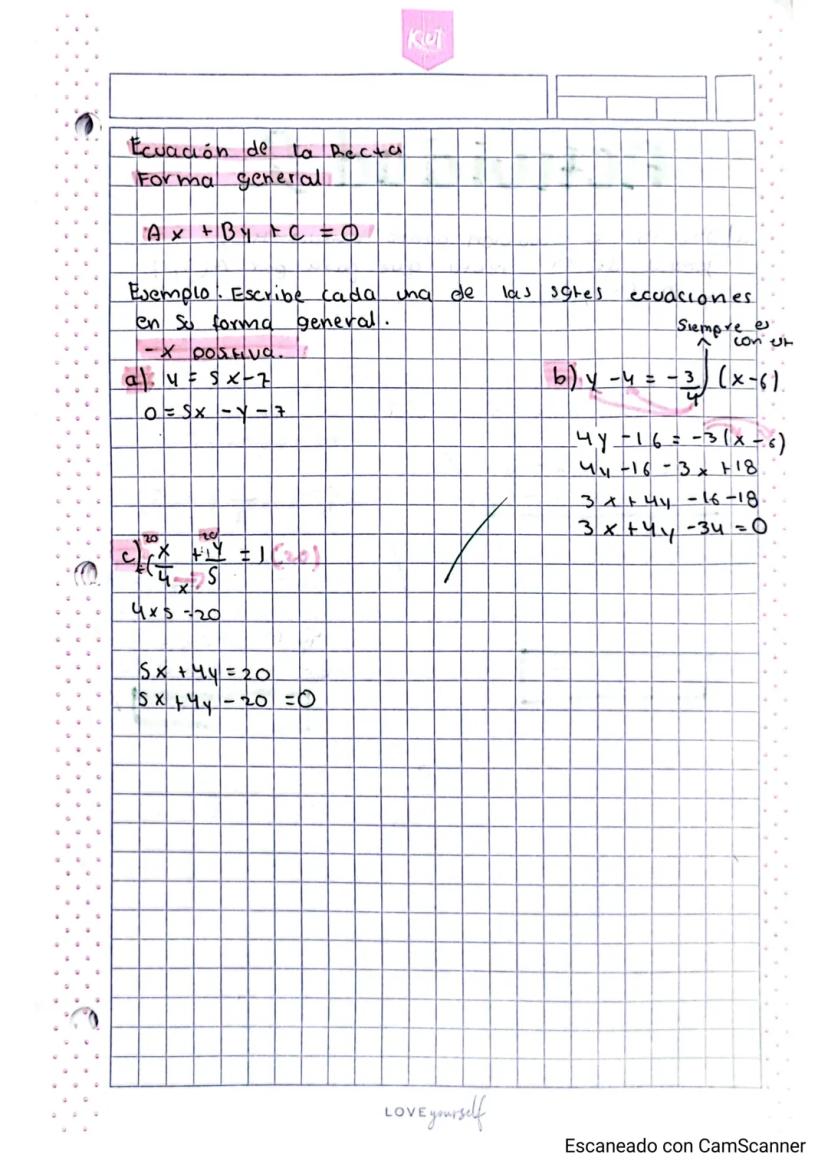 KUT
Ecuación de la Recta
Forma general
Ax + By + C = 0
Ejemplo: Escribe cada una de las sgtes ecuaciones
en su forma general.
-x positiva.
a) y = 5x-7
0 = 5x - y - 7
Siempre es
con un
b) y - 4 = -3/4 (x-6)
4y - 16 = -3(x-6)
4y -16 - 3x +18
3x + 4y -16 -18
3x + 4y - 34 = 0
20 20
c) (x/4 + 1y/5 = 1 (20)
x
4x5 = 20
5x + 4y = 20
5x + 4y - 20 = 0
LOVE yourself
Escaneado con CamScanner